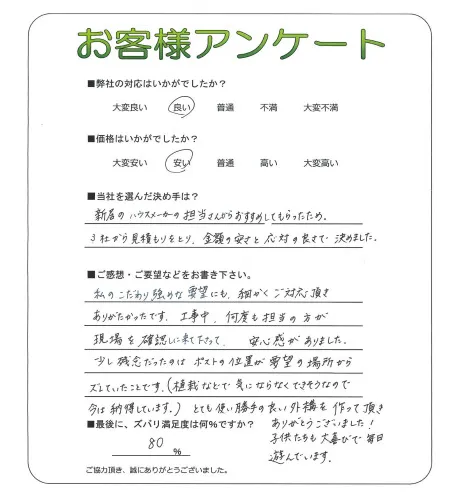 お客様アンケート
■弊社の対応はいかがでしたか？
大変良い 良い 普通 不満 大変不満
■価格はいかがでしたか？
大変安い 安い 普通 高い 大変高い
■当社を選んだ決め手は？
新居のハウスメーカーの担当さんからおすすめしてもらったため。
3社から見積もりをとり、金額の安さと応対の良さで決めました。
■ご感想・ご要望などをお書き下さい。
私のこだわり強めな要望にも、細かくご対応頂き
ありがたかったです。工事中、何度も担当の方が
現場を確認しに来て下さって、安心感がありました。
少し残念だったのはポストの位置が要望の場所から
ズレていたことです。(植栽などで気にならなくできそうなので
今は納得しています。) とても使い勝手の良い外構を作って頂き
ありがとうございました！
子供たちも大喜びで毎日
遊んでいます。
■最後に、ズバリ満足度は何%ですか？
80 %
ご協力頂き、誠にありがとうございました。